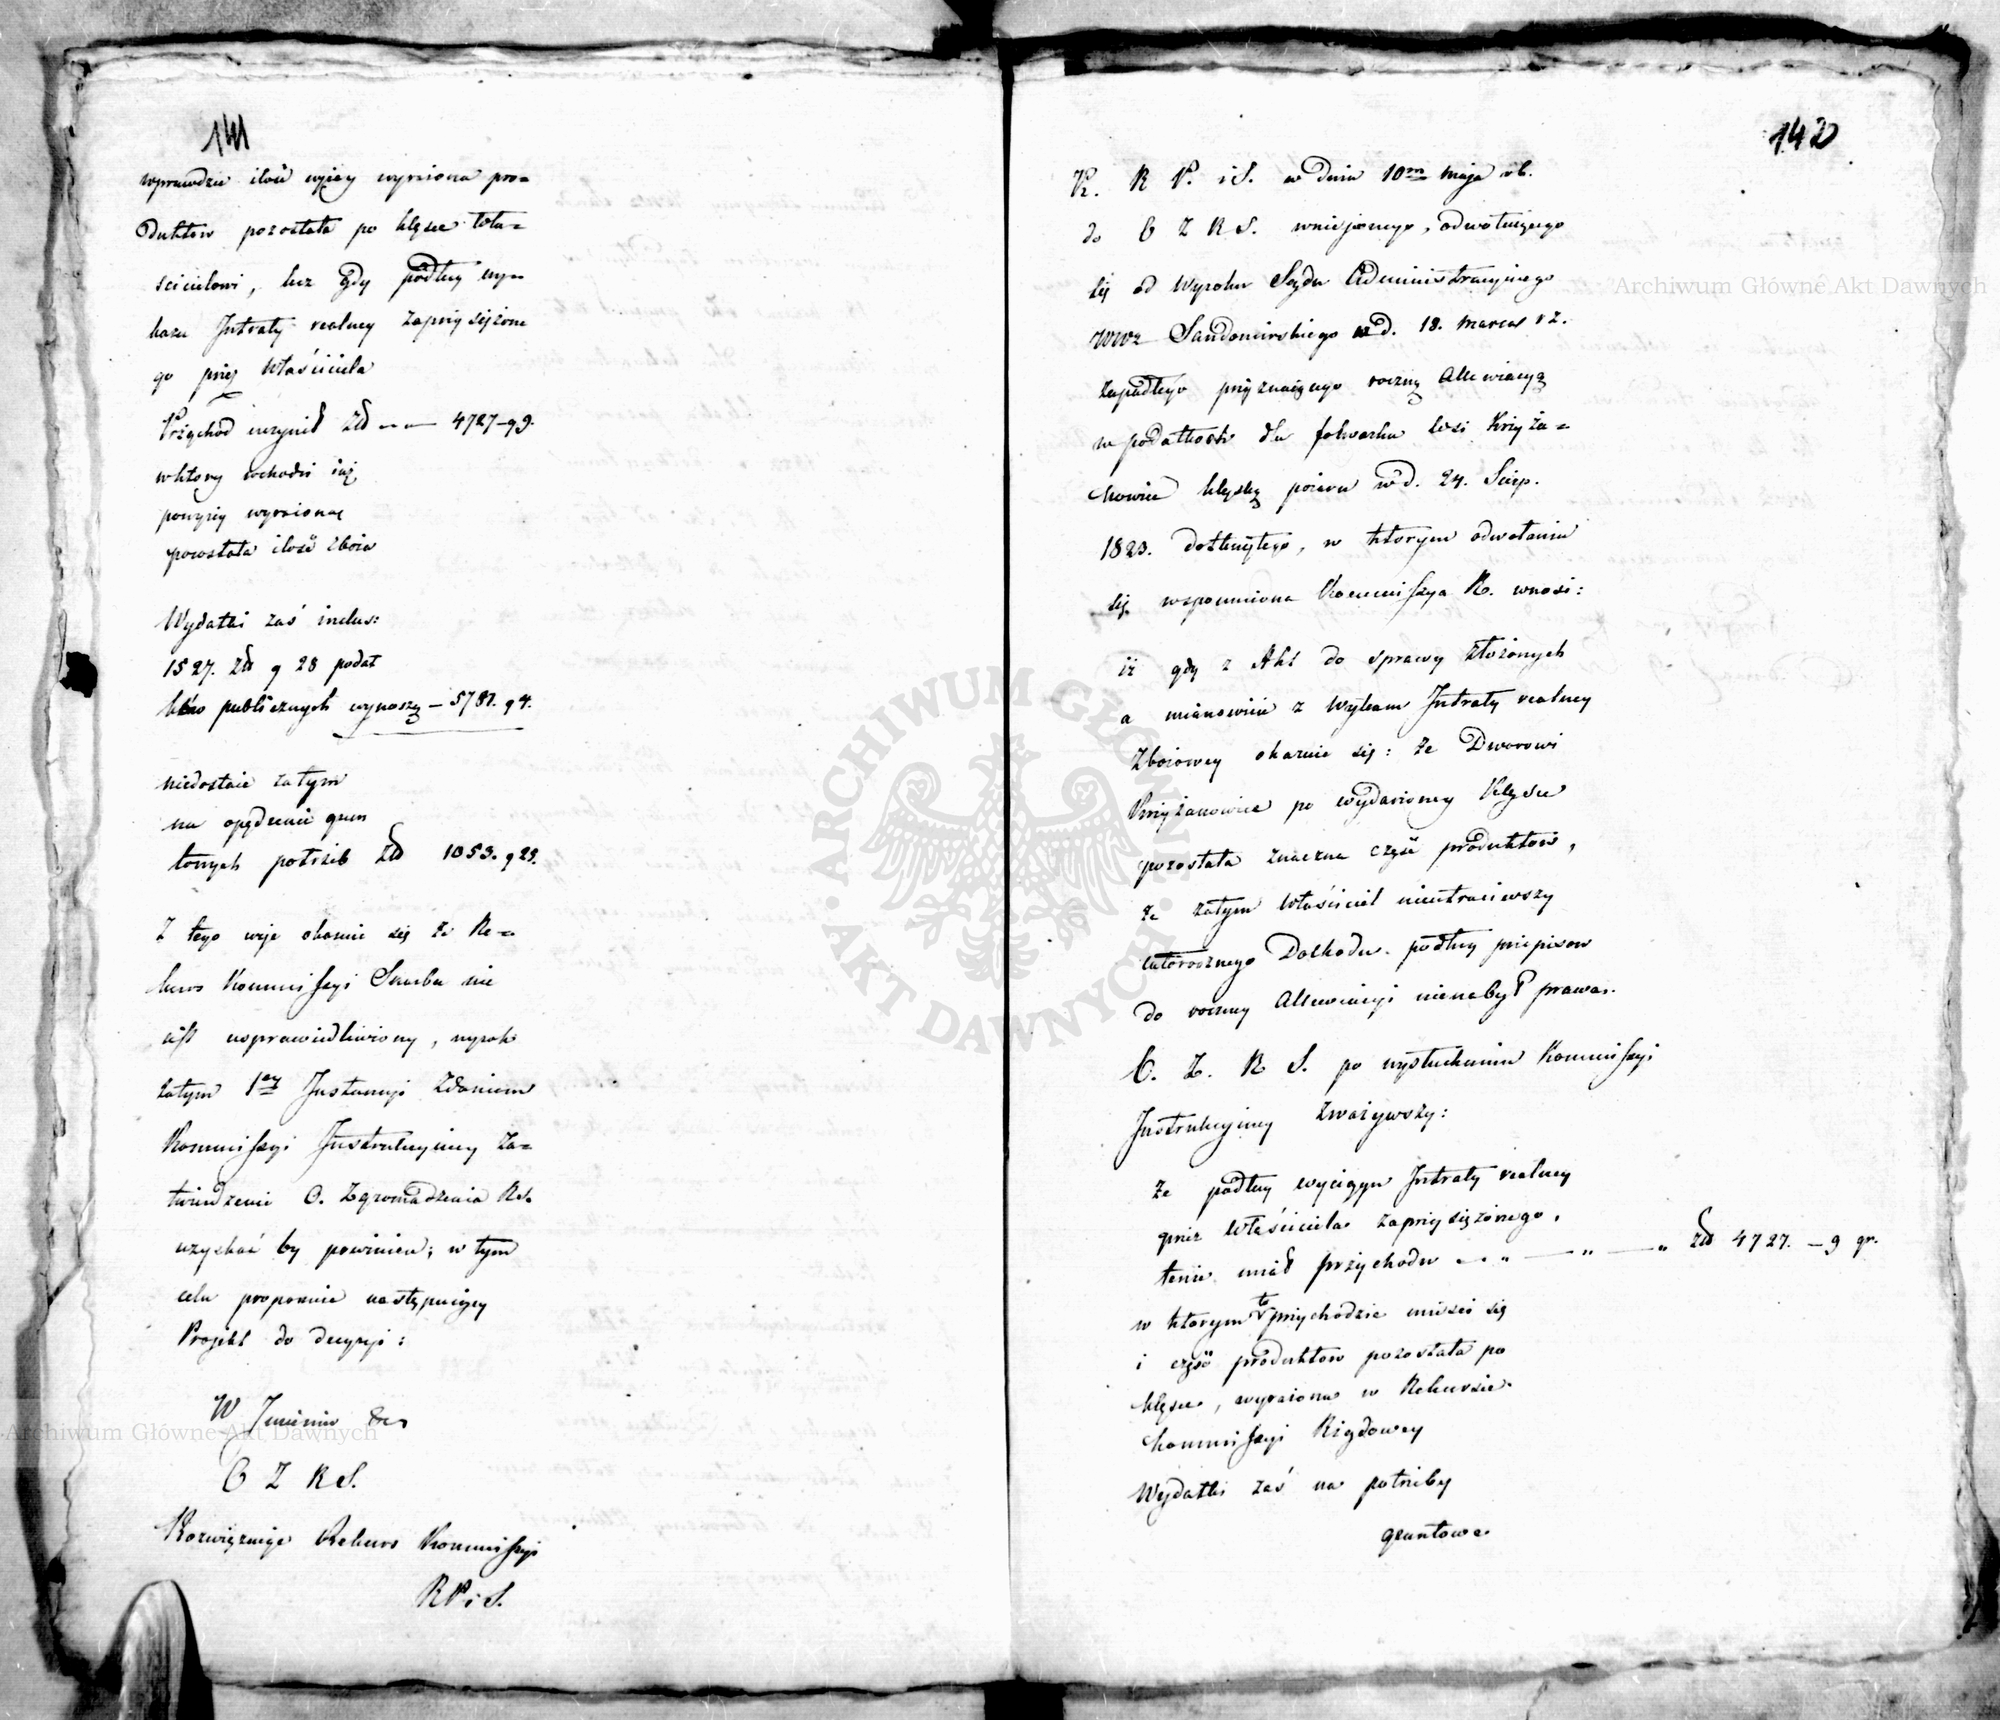 141
wprawdzie ilość wyżey wyrażona pro=
duktow pozostała po klęsce wła=
scicielowi, lecz gdy podług wy=
kazu Intraty realney zaprzysiężone
go przez właściciela
Przychod uczynił Zł — 4727 — g 9.
w ktory wchodzi iuż
powyżey wyrażona
pozostała ilość zboża
Wydatki zaś inclus:
1527. Zł g 28 podat
ków publicznych wynoszą — 5781. g 4.
niedostaie zatym
na opędzenie grun
towych potrzeb Zł 1053. g 25.
Z tego więc okazuie się że Re=
kurs Kommissyi Skarbu nie
iest usprawiedliwiony, wyrok
zatym 1ey Instancyi zdaniem
Kommissyi Instrukcyiney za=
twierdzenie O. Zgromadzenia RS.
uzyskać by powinien; w tym
celu proponuie następuiący
Projekt do decyzyi:
W Imieniu &c
O Z R S.
Rozwiązuiąc Rekurs Kommissyi
R P i S.
142
K. R P. i S. w dniu 10m maja rb.
do O Z R S. wniesionego, odwołuiącego
się od Wyroku Sądu Administracyinego
Wwa Sandomirskiego w d. 18. marca r z.
zapadłego przyznaiącego roczną Allewiacyą
w podatkach dla folwarku wsi Krzyża=
nowice klęską pożaru w d. 24. Sierp.
1823. dotkniętego, w ktorym odwołaniu
się wspomniona Kommissya R. wnosi:
iż gdy z Akt do sprawy złożonych
a mianowicie z Wykazu Intraty realney
Zbożowey okazuie się: że Dworowi
Krzyżanowice po wydarzoney klęsce
pozostała znaczna część produktow,
że zatym Właściciel nieutraciwszy
całorocznego Dochodu podług przepisow
do roczney Allewiacyi nienabył prawa.
O. Z. R S. po wysłuchaniu Kommissyi
Instrukcyiney zważywszy:
że podług wyciągu Intraty realney
przez Właściciela zaprzysiężonego,
tenże miał przychodu — „ — „ — „ Zł 4727. — 9 gr.
w ktorym to przychodzie mieści się
i część produktow pozostała po
klęsce, wyrażona w Rekursie
Kommissyi Rządowey
Wydatki zaś na potrzeby
gruntowe
Archiwum Główne Akt Dawnych
Archiwum Główne Akt Dawnych
ARCHIWUM GŁÓWNE · AKT DAWNYCH ·